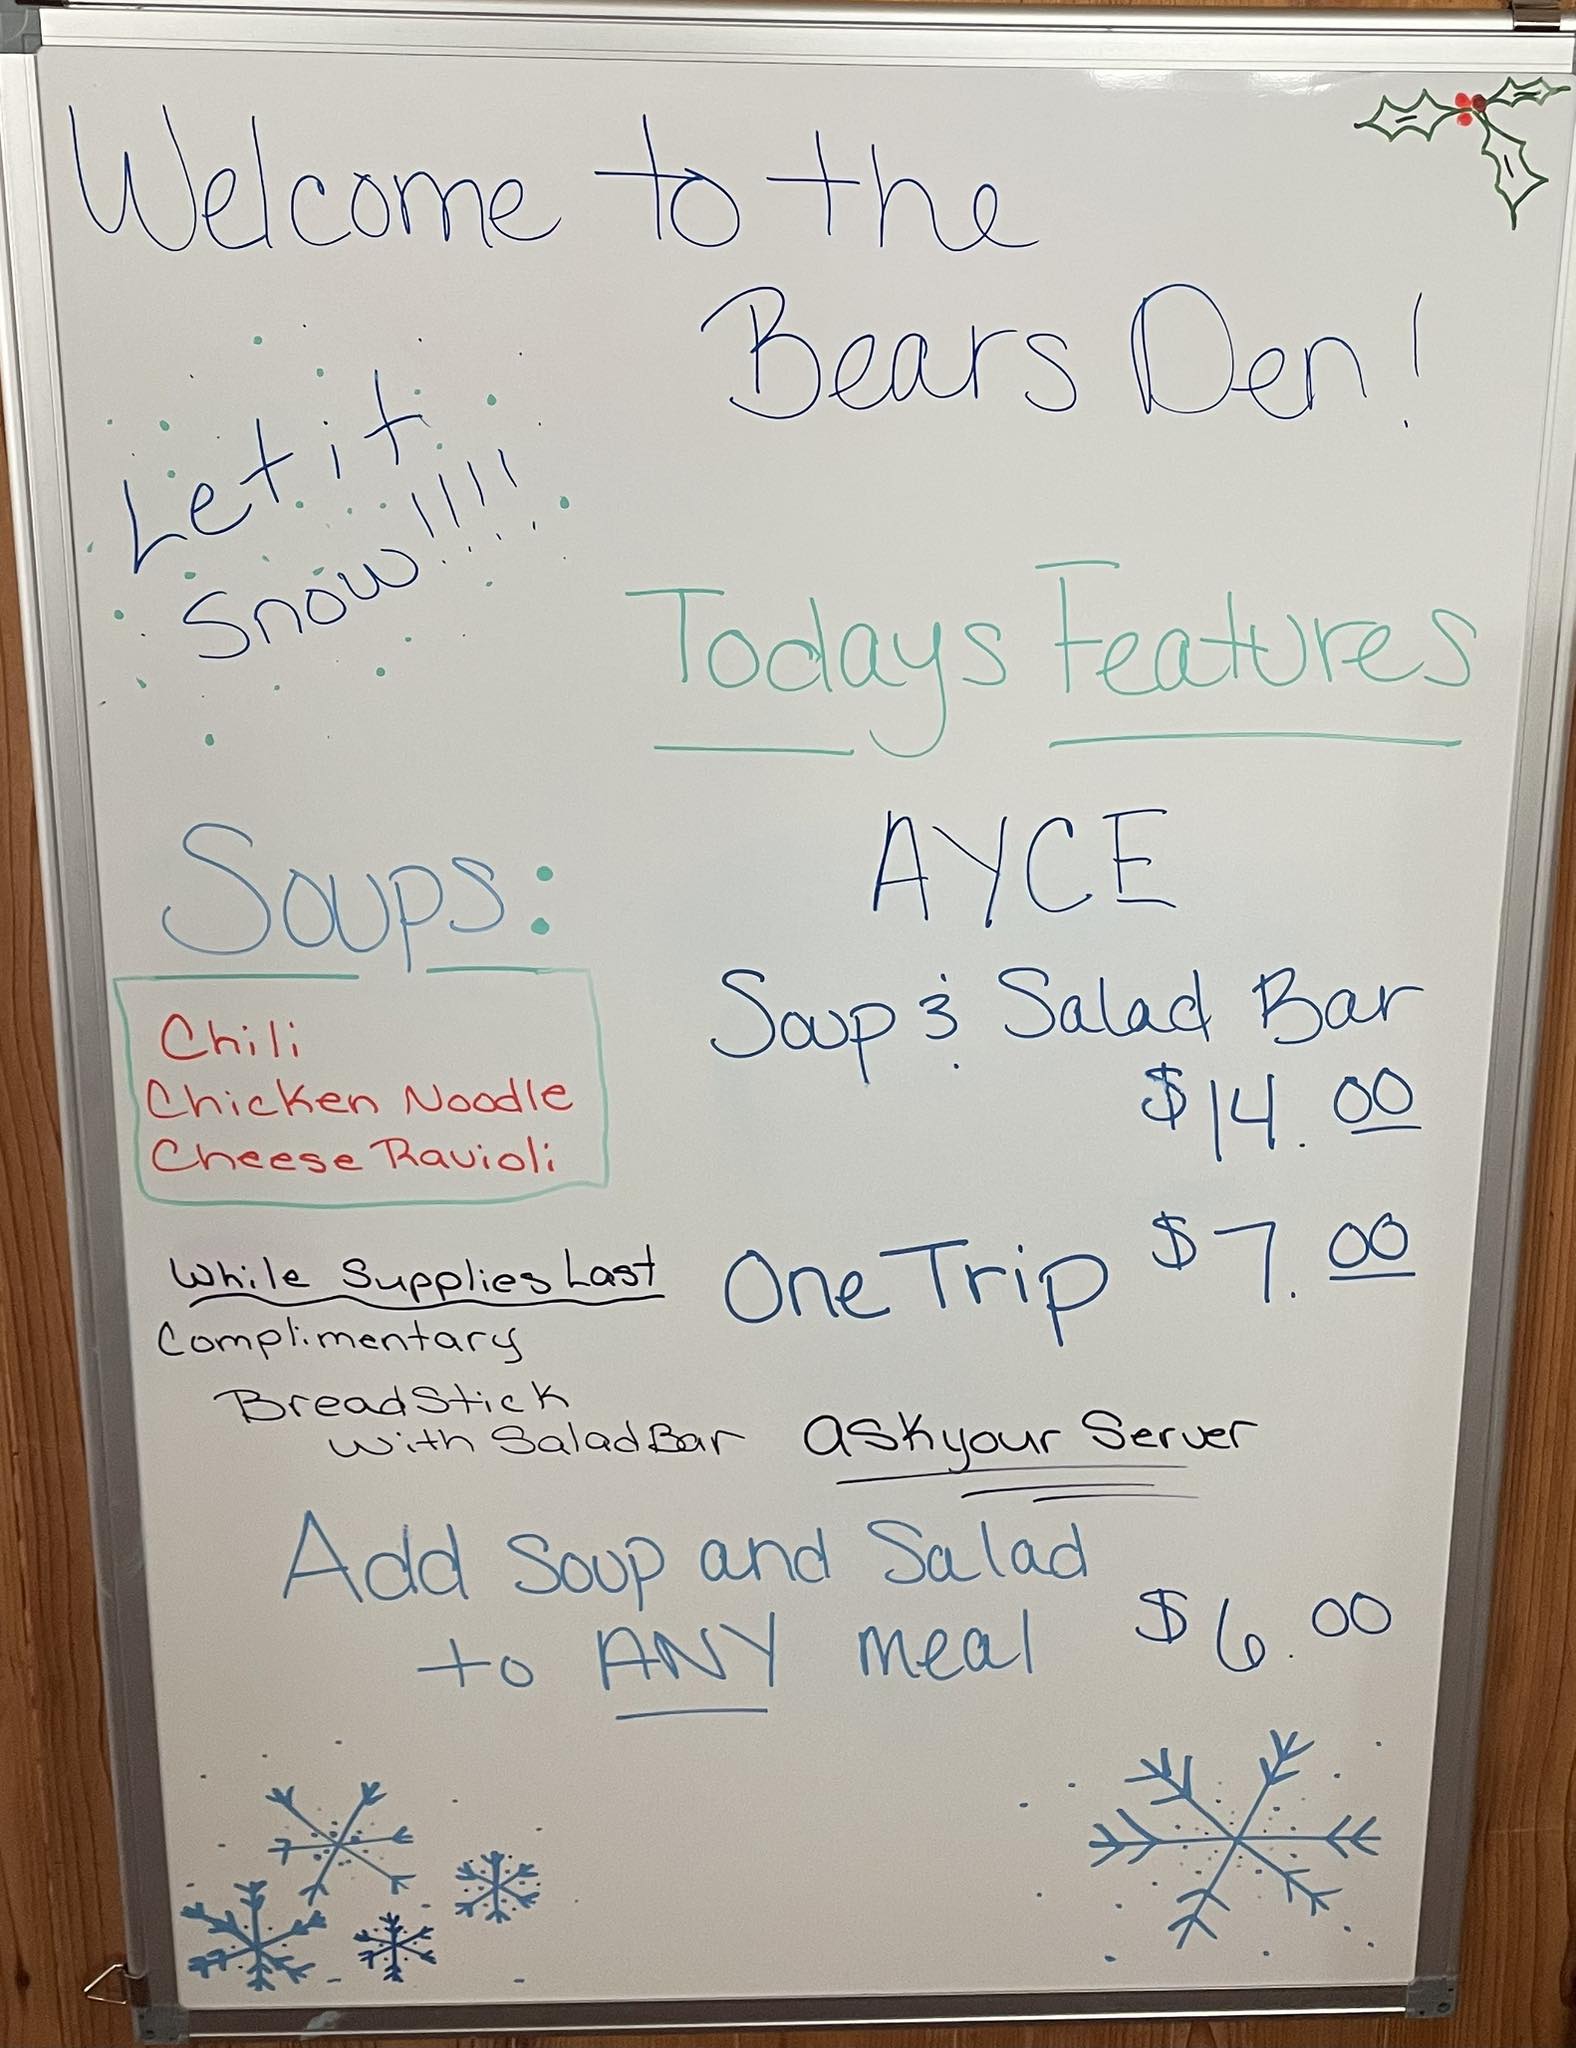 Welcome to the
Bears Den!
Let it
Snow!!!!
Todays Features
Soups:
Chili
Chicken Noodle
Cheese Ravioli
AYCE
Soup & Salad Bar
$14.00
One Trip $7.00
While Supplies Last
Complimentary
BreadStick
with Salad Bar
ask your Server
Add Soup and Salad
to ANY meal $6.00